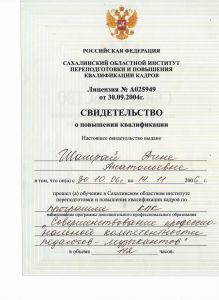 РОССИЙСКАЯ ФЕДЕРАЦИЯ
САХАЛИНСКИЙ ОБЛАСТНОЙ ИНСТИТУТ
ПЕРЕПОДГОТОВКИ И ПОВЫШЕНИЯ
КВАЛИФИКАЦИИ КАДРОВ
Лицензия № А025949
от 30.09.2004г.
СВИДЕТЕЛЬСТВО
о повышении квалификации
Настоящее свидетельство выдано
Анне
Анатольевне
в том, что он(а) с 30.10.06г. по 14.11 2006 г.
прошел (а) обучение в Сахалинском областном институте
переподготовки и повышения квалификации кадров по
программе КПК
наименование программы дополнительного профессионального образования
"Совершенствование професси-
ональной компетентности
педагогов - музыкантов"
в объеме часов